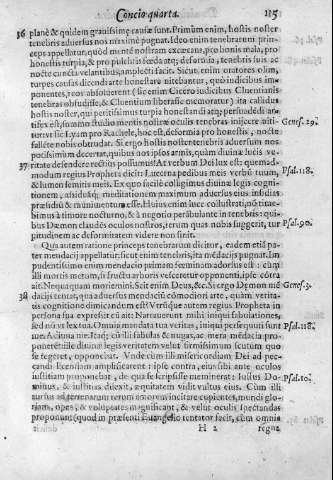 Concio quarta. 115
36 planè & quidem grauissimę causæ sunt. Primùm enim, hostis noster
tenebris aduersus nos maximè pugnat. Ideo enim tenebrarum prin-
ceps appellatur, quòd mentē nostram excæcans, pro bonis mala, pro
honestis turpia, & pro pulchris fœda atq; deformia, tenebris suis ac
nocte cuncta velantibus, amplecti facit. Sicut enim oratores olim,
turpes causas dicendi arte honestare nitebantur, quò iudicibus impo-
nentes, reos absoluerent (sic enim Cicero iudicibus Cluentianis
tenebras obfudisse, & Cluentium liberasse memoratur) ita callidus
hostis noster, qui peritissimus turpia honestandi atq; persuadēdi ar-
tifex est, summo studio mentis nostræ oculis tenebras inijcere niti-
tur: vt sic Lyam pro Rachele, hoc est, deformia pro honestis, nocte Genes. 29.
fallēte nobis obtrudat. Si ergo hostis noster tenebris aduersum nos
potissimùm decertat, quibus nos ipsos armis, quàm diuinæ lucis ve-
37 ritate defendere rectiùs possumus? At verbum Dei lux est: quemad-
modum regius Propheta dicit: Lucerna pedibus meis verbū tuum, Psal. 118.
& lumen semitis meis. Ex quo facilè colligimus diuinæ legis cogni-
tionem, assiduāq; meditationem maximum aduersus eius insidias
præsidiū & munimentum esse. Huius enim luce collustrati, nō time-
bimus à timore nocturno, & à negotio perābulante in tenebris: qui-
bus Dæmon claudēs oculos nostros, rerum quas nobis suggerit, tur Psal. 90.
pitudinem ac deformitatem videre non sinit.
Qua autem ratione princeps tenebrarum dicitur, eadem etiā pa-
ter mendacij appellatur: sicut enim tenebris, ita mēdacijs pugnat. Im
pudentissimo enim mendacio primam feminam adortus est: cùm
illi mortis metum, si fructu arboris vesceretur opponenti, ipse cōtra
ait. Nequaquam moriemini. Scit enim Deus, &c. Si ergo Dęmon mē Genes. 3.
38 dacijs tentat, qua aduersus mendaciū cōmodiori arte, quàm verita-
tis cognitione dimicandum est? Vtrūq; autem regius Propheta in
persona sua expressit cū ait: Narrauerunt mihi iniqui fabulationes,
sed nō vt lex tua. Omnia mandata tua veritas, iniqui persequuti sunt Psal. 118.
me. Adiuua me. Itaq; ille fabulas & nugas, ac mera mēdacia pro-
ponēte: ille diuinæ legis veritatem velut firmissimum scutum quo
se tegeret, opponebat. Vnde cum illi misericordiam Dei ad pec-
candi licentiam amplificaret: ipse contra, eius sibi ante oculos
iustitiam proponebat, de qua se scripsisse meminerat: Iustus Do- Psal. 10.
minus, & iustitias dilexit, equitatem vidit vultus eius. Cùm illi
rursus ad terrenarum rerum amorem incitare cupientes, mundi glo-
riam, opes, & voluptates magnificant, & velut oculis spectandas
proponunt (quod in præsenti Euangelio tentator facit, cùm omnia
H 2 regna